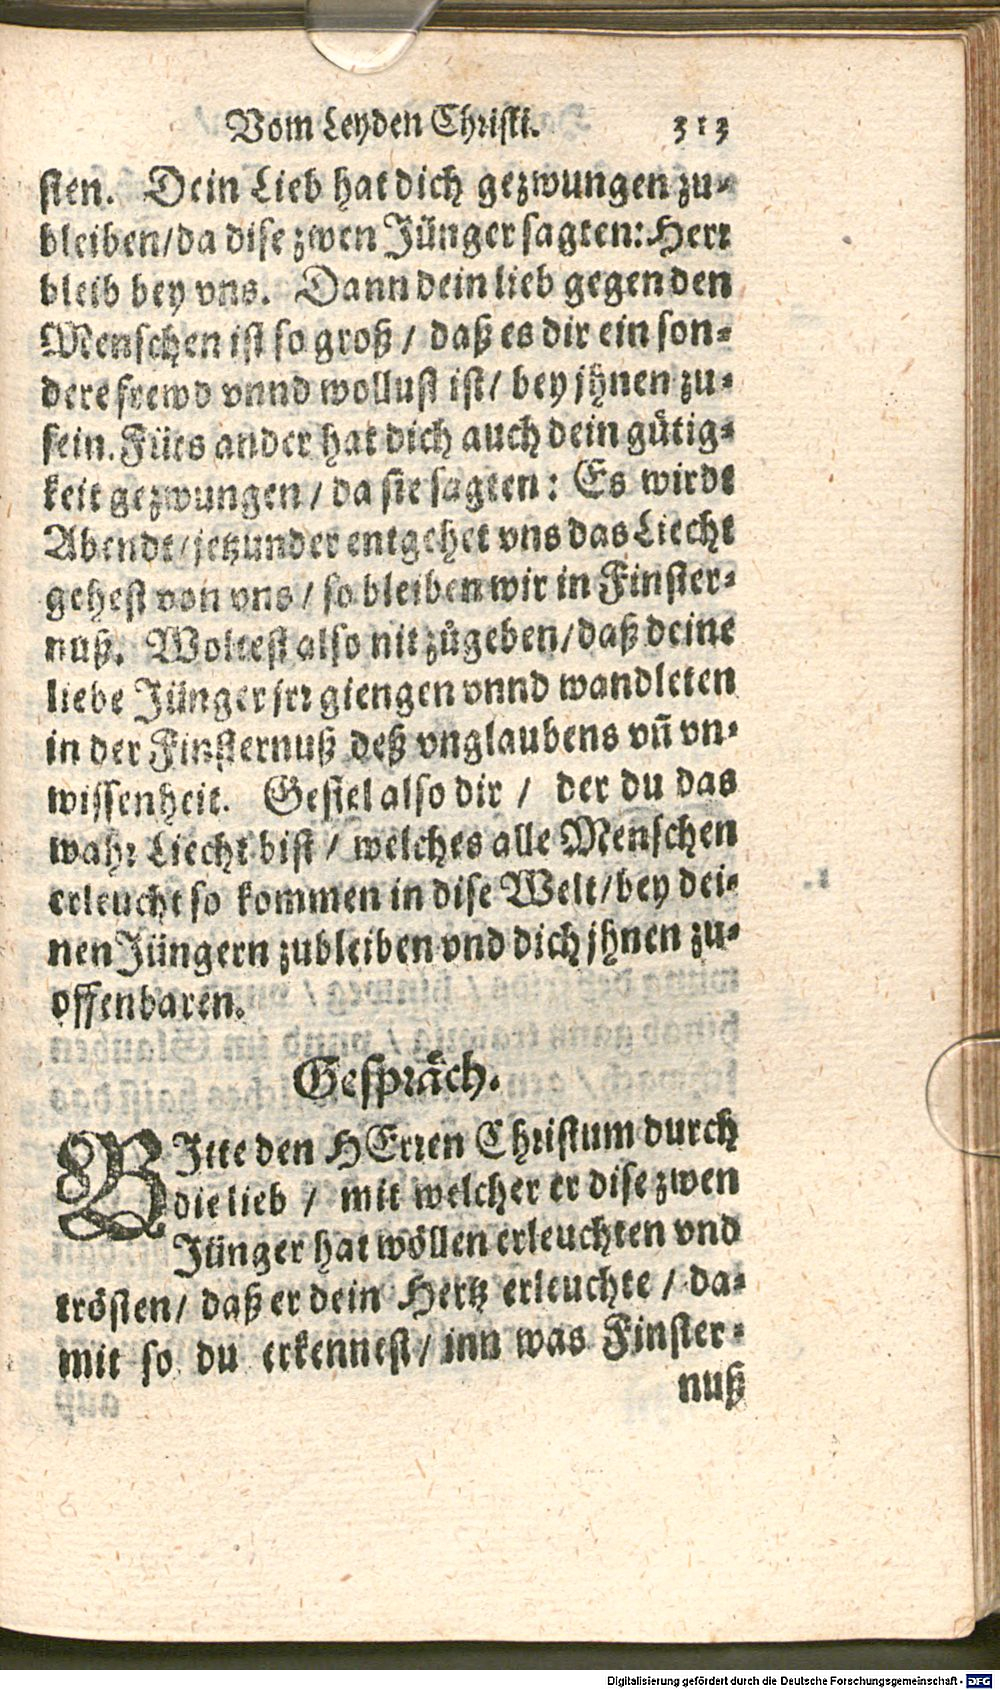 Vom Leyden Christi. 313
sten. Dein Lieb hat dich gezwungen zu-
bleiben/da dise zwen Jünger sagten: Herr
bleib bey vns. Dann dein lieb gegen den
Menschen ist so groß / daß es dir ein son-
dere frewd vnnd wollust ist/ bey jhnen zu-
sein. Fürs ander hat dich auch dein gütig-
keit gezwungen / da sie sagten: Es wirdt
Abendt/jetzunder entgehet vns das Liecht
gehest von vns / so bleiben wir in Finster-
nuß. Woltest also nit zůgeben/daß deine
liebe Jünger jrr giengen vnnd wandleten
in der Finsternuß deß vnglaubens vñ vn-
wissenheit. Gefiel also dir / der du das
wahr Liecht bist / welches alle Menschen
erleucht so kommen in dise Welt/bey dei-
nen Jüngern zubleiben vnd dich jhnen zu-
offenbaren.
Gespräch.
BItte den HErren Christum durch
die lieb / mit welcher er dise zwen
Jünger hat wöllen erleuchten vnd
trösten/ daß er dein Hertz erleuchte / da-
mit so du erkennest/ inn was Finster-
nuß
Digitalisierung gefördert durch die Deutsche Forschungsgemeinschaft - DFG